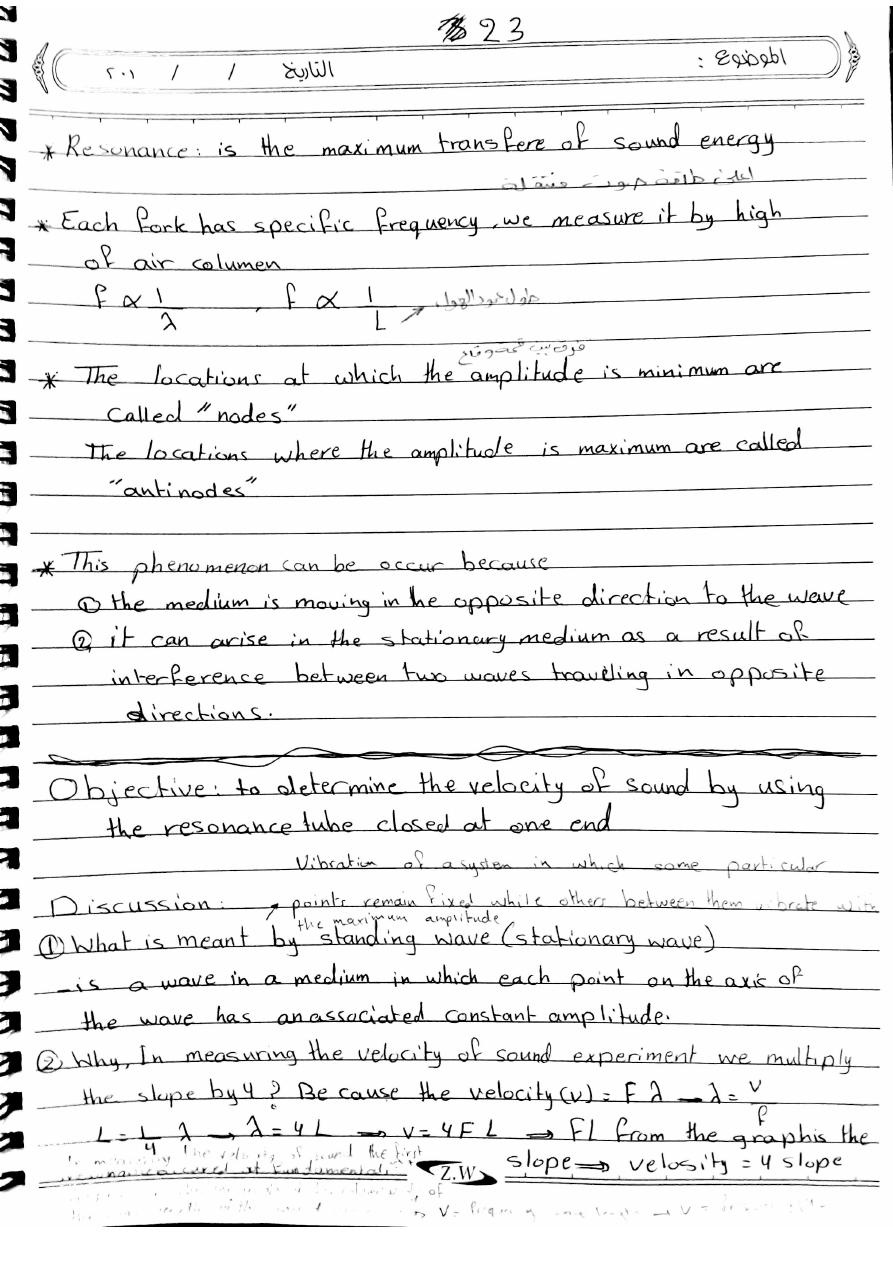 23
الموضوع :
التاريخ / / ٢٠١
* Resonance: is the maximum transfere of sound energy
اعلى طاقة صوت منتقلة
* Each fork has specific frequency, we measure it by high
of air columen
f ∝ 1/λ , f ∝ 1/L → طول عمود الهواء
فرق بين قمة وقاع
* The locations at which the amplitude is minimum are
Called "nodes"
The locations where the amplitude is maximum are called
"antinodes"
* This phenomenon can be occur because
① the medium is moving in he opposite direction to the wave
② it can arise in the stationary medium as a result of
interference between two waves travelling in opposite
directions.
Objective: to determine the velocity of sound by using
the resonance tube closed at one end
Vibration of a system in which some particular
Discussion: points remain fixed while others between them vibrate with
the maximum amplitude
① What is meant by standing wave (stationary wave)
- is a wave in a medium in which each point on the axis of
the wave has an associated constant amplitude.
② Why, In measuring the velocity of sound experiment we multiply
the slope by 4? Be cause the velocity (v) = F λ → λ = v/f
L = L/4 λ → λ = 4 L → v = 4 F L → FL from the graph is the
slope → velosity = 4 slope
the velocity of sound the first
Z.W